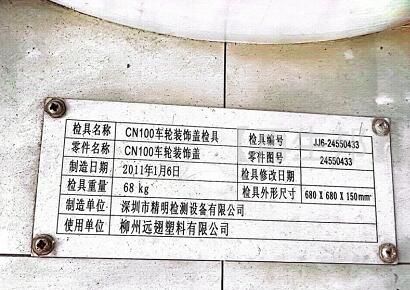 检具名称 CN100车轮装饰盖检具 检具编号 JJ6-24550433
零件名称 CN100车轮装饰盖 零件图号 24550433
制造日期 2011年1月6日 检具修改日期
检具重量 68 kg 检具外形尺寸 680 x 680 x 150mm
制造单位: 深圳市精明检测设备有限公司
使用单位: 柳州远翅塑料有限公司